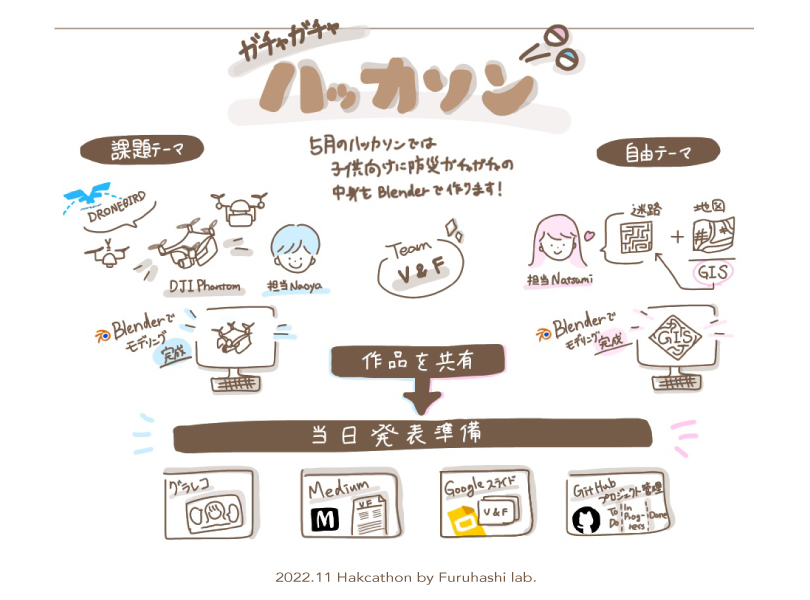 ガチャガチャ
ハッカソン
課題テーマ
5月のハッカソンでは
子供向けに防災ガチャガチャの
中身をBlenderで作ります!
自由テーマ
DRONEBIRD
DJI Phantom
担当Naoya
Team
V & F
担当Natsumi
迷路
+
地図
GIS
Blenderで
モデリング
完成
Blenderで
モデリング
完成
GIS
作品を共有
当日発表準備
グラレコ
Medium
M
V F
Googleスライド
V & F
GitHub
プロジェクト管理
To Do
In Prog- ress
Done
2022.11 Hakcathon by Furuhashi lab.